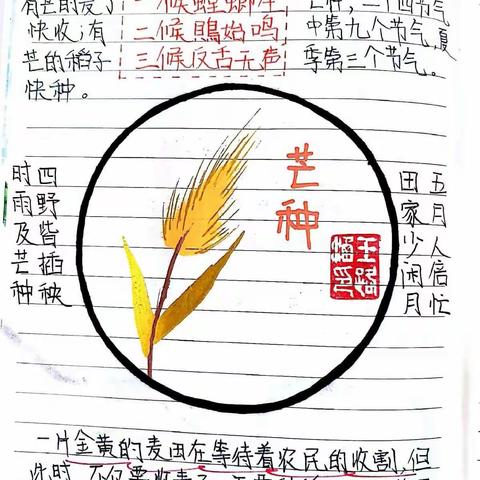 有芒的麦子
快收;有
芒的稻子
快种。
一候螳螂生
二候鵙始鸣
三候反舌无声
二十四节气
中第九个节气,夏
季第三个节气。
芒种
四野皆插秧
时雨及芒种
五月人信忙
田家少闲月
一片金黄的麦田在等待着农民的收割,但
此时,不仅要收麦子